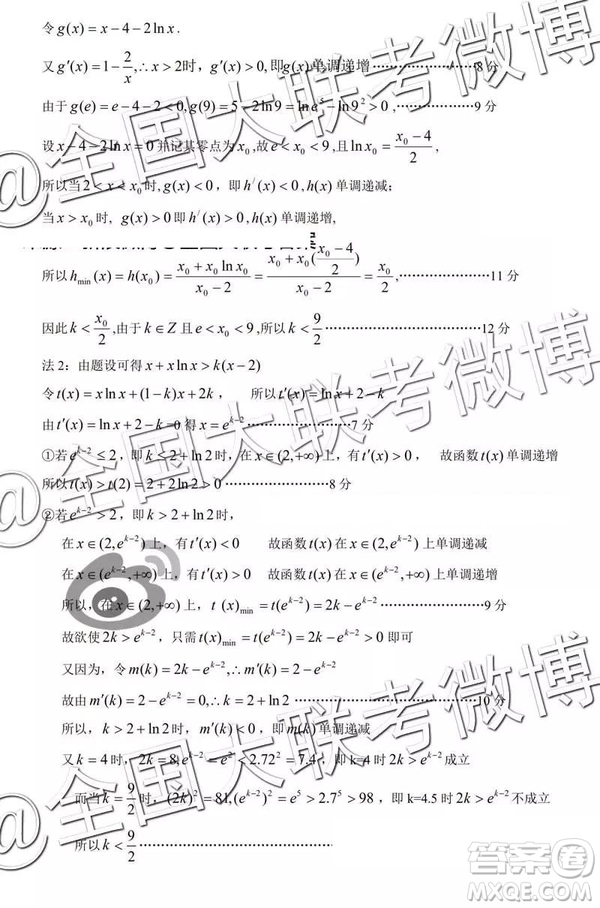 令g(x)=x-4-2lnx.
又g′(x)=1-2/x,∴x>2时，g′(x)>0,即g(x)单调递增························8分
由于g(e)=e-4-2<0,g(9)=5-2ln9=lne⁵-ln9²>0,··················9分
设x-4-2lnx=0并记其零点为x₀,故e<x₀<9,且lnx₀=(x₀-4)/2,
所以当2<x<x₀时,g(x)<0，即h′(x)<0,h(x)单调递减;
当x>x₀时，g(x)>0即h′(x)>0,h(x)单调递增,
所以h_min(x)=h(x₀)=(x₀+x₀lnx₀)/(x₀-2)=(x₀+x₀((x₀-4)/2))/(x₀-2)=x₀/2,······················11分
因此k<x₀/2,由于k∈Z且e<x₀<9,所以k<9/2····································12分
法2：由题设可得x+xlnx>k(x-2)
令t(x)=xlnx+(1-k)x+2k， 所以t′(x)=lnx+2-k
由t′(x)=lnx+2-k=0得x=e^(k-2)··························7分
①若e^(k-2)≤2，即k≤2+ln2时，在x∈(2,+∞)上，有t′(x)>0， 故函数t(x)单调递增
所以t(x)>t(2)=2+2ln2>0··························8分
②若e^(k-2)>2，即k>2+ln2时，
在x∈(2,e^(k-2))上，有t′(x)<0 故函数t(x)在x∈(2,e^(k-2))上单调递减
在x∈(e^(k-2),+∞)上，有t′(x)>0 故函数t(x)在x∈(e^(k-2),+∞)上单调递增
所以，在x∈(2,+∞)上，t(x)_min=t(e^(k-2))=2k-e^(k-2)··························9分
故欲使2k>e^(k-2)，只需t(x)_min=t(e^(k-2))=2k-e^(k-2)>0即可
又因为，令m(k)=2k-e^(k-2),∴m′(k)=2-e^(k-2)
故由m′(k)=2-e^(k-2)=0,∴k=2+ln2····································10分
所以，k>2+ln2时，m′(k)<0，即m(k)单调递减
又k=4时，2k=8,e^(k-2)=e²<2.72²=7.4，即k=4时2k>e^(k-2)成立
而当k=9/2时，(2k)²=81,(e^(k-2))²=e⁵>2.7⁵>98，即k=4.5时2k>e^(k-2)不成立
所以k<9/2····································
@全国大联考微博
@全国大联考微博
@全国大联考微博
答案卷
MXQE.COM